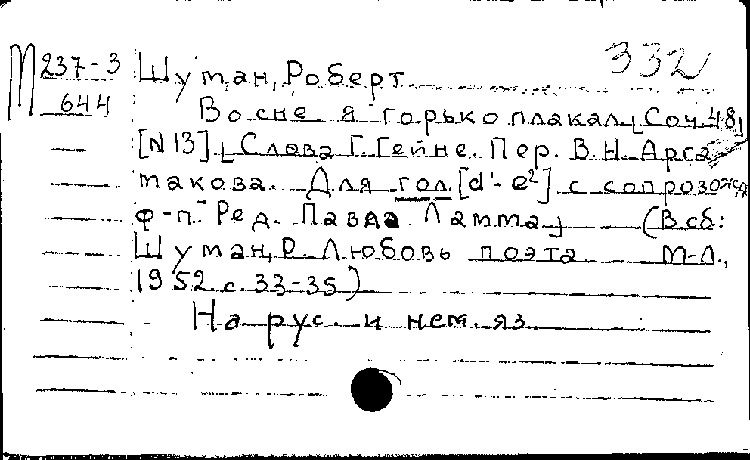 М 237-3
644
332
Шуман, Роберт
Во сне я горько плакал [Соч. 48,
[N 13]. [Слова Г. Гейне. Пер. В. Н. Арга
макова. Для гол. [d'-e²] с сопровожд
ф-п." Ред. Павла Ламма] (В сб:
Шуман, Р. Любовь поэта М-Л.,
1952 с. 33-35)
На рус. и нем. яз.